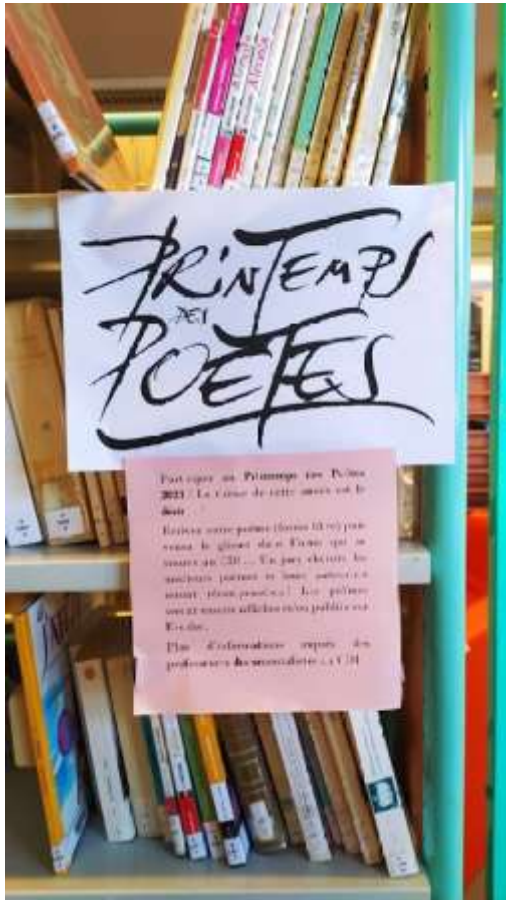 PRINTEMPS
DES
POÈTES
Participez au Printemps des Poètes
2021 ! Le thème de cette année est le
désir
Ecrivez votre poème (forme libre) puis
venez le glisser dans l'urne qui se
trouve au CDI ... Un jury choisira les
meilleurs poèmes et leurs auteur.e.s
seront récompensé.e.s ! Les poèmes
seront ensuite affichés et/ou publiés sur
Plus d'informations auprès des
professeures documentalistes au CDI